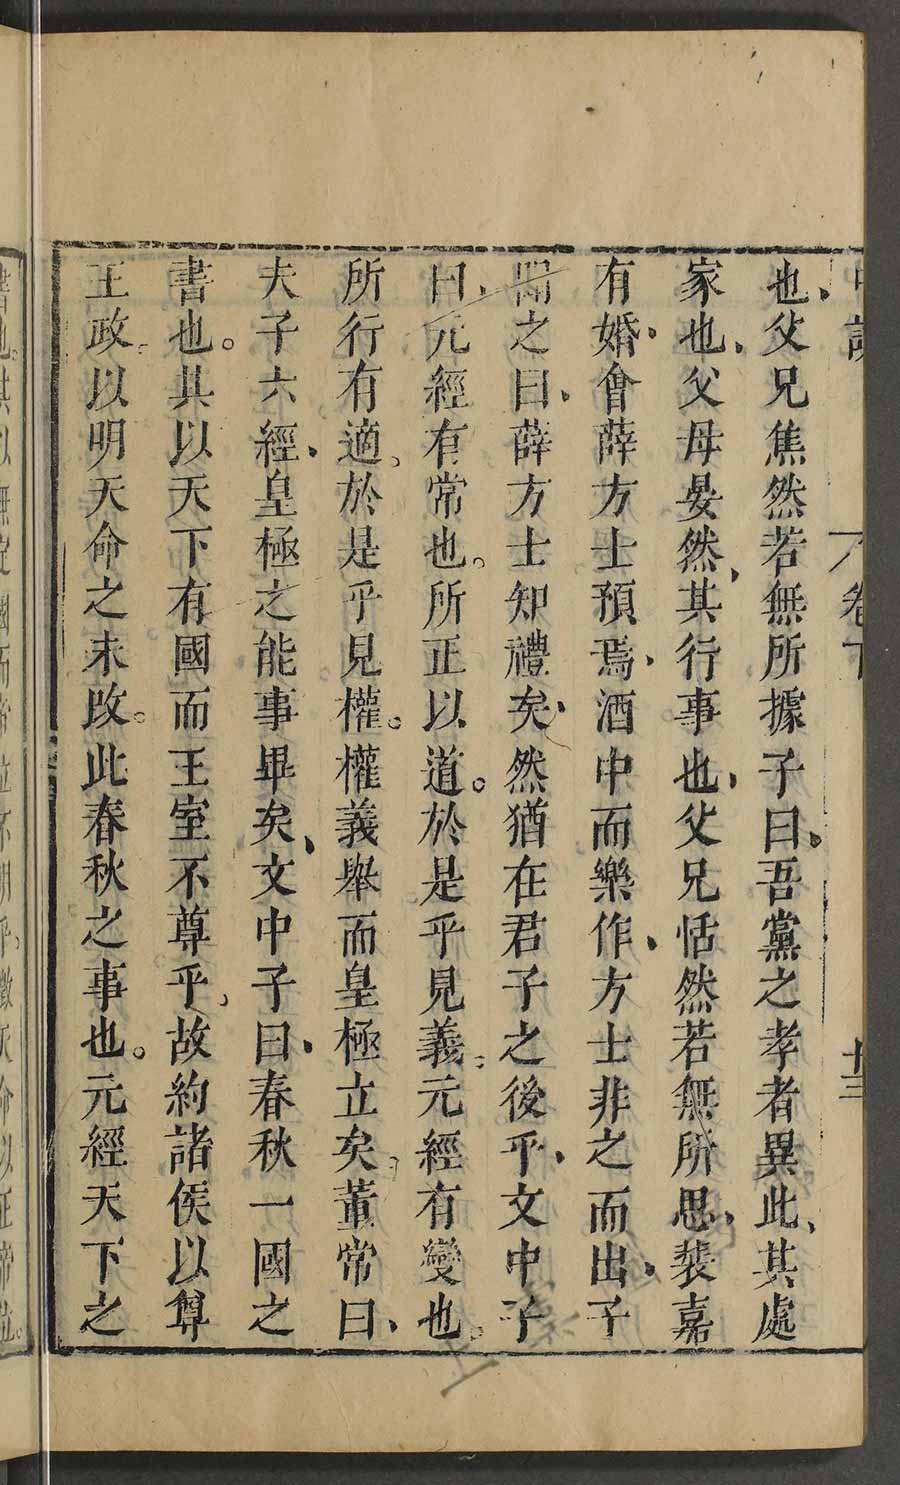 中說 卷下 十三
也、父兄焦然若無所據子曰、吾黨之孝者異此、其處
家也、父母晏然、其行事也、父兄恬然若無所思、裴嘉
有婚、會薛方士預焉、酒中而樂作、方士非之而出、子
聞之曰、薛方士知禮矣、然猶在君子之後乎、文中子
曰、元經有常也。所正以道。於是乎見義。元經有變也。
所行有適。於是乎見權。權義舉而皇極立矣。董常曰、
夫子六經、皇極之能事畢矣、文中子曰、春秋一國之
書也。其以天下有國而王室不尊乎、故約諸侯以尊
王政。以明天命之未改。此春秋之事也。元經天下之